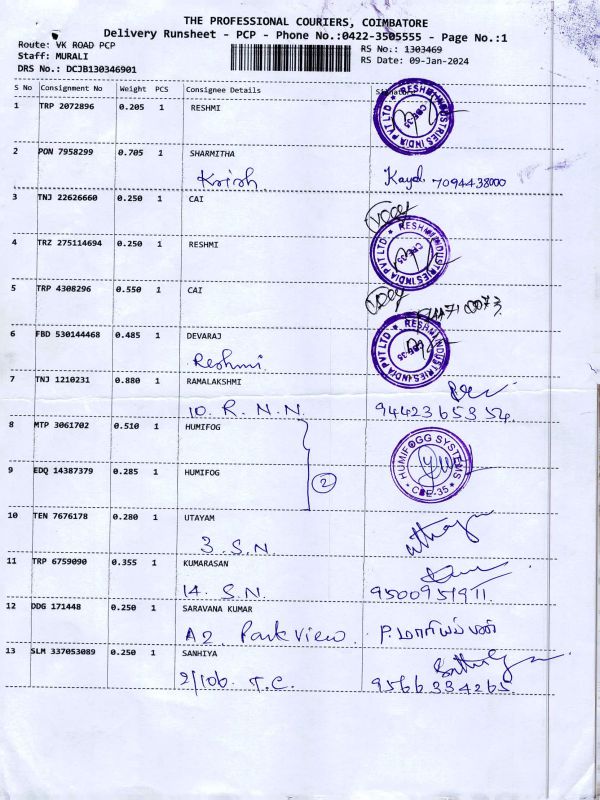 THE PROFESSIONAL COURIERS, COIMBATORE
Delivery Runsheet - PCP - Phone No.:0422-3505555 - Page No.:1
Route: VK ROAD PCP
Staff: MURALI
DRS No.: DCJB130346901
RS No.: 1303469
RS Date: 09-Jan-2024
S No Consignment No Weight PCS Consignee Details
1 TRP 2072896 0.205 1 RESHMI
RESHMI INDUSTRIES INDIA PVT LTD ★ CBE-35
2 PON 7958299 0.705 1 SHARMITHA
Krish. Kayal. 7094438000
3 TNJ 22626660 0.250 1 CAI
4 TRZ 275114694 0.250 1 RESHMI
RESHMI INDUSTRIES INDIA PVT LTD ★ CBE-35
5 TRP 4308296 0.550 1 CAI
6 FBD 530144468 0.485 1 DEVARAJ
Reshmi.
RESHMI INDUSTRIES INDIA PVT LTD ★ CBE-35
7 TNJ 1210231 0.880 1 RAMALAKSHMI
10. R. N. N. 94423 65354
8 MTP 3061702 0.510 1 HUMIFOG
9 EDQ 14387379 0.285 1 HUMIFOG
2
HUMIFOGG SYSTEMS ★ CBE-35 ★
10 TEN 7676178 0.280 1 UTAYAM
3. S. N
11 TRP 6759090 0.355 1 KUMARASAN
14. S. N. 9500951911.
12 DDG 171448 0.250 1 SARAVANA KUMAR
A2. Park view. P. மாரியப்பன்
13 SLM 337053089 0.250 1 SANHIYA
2/106. T. C. 9566334265.